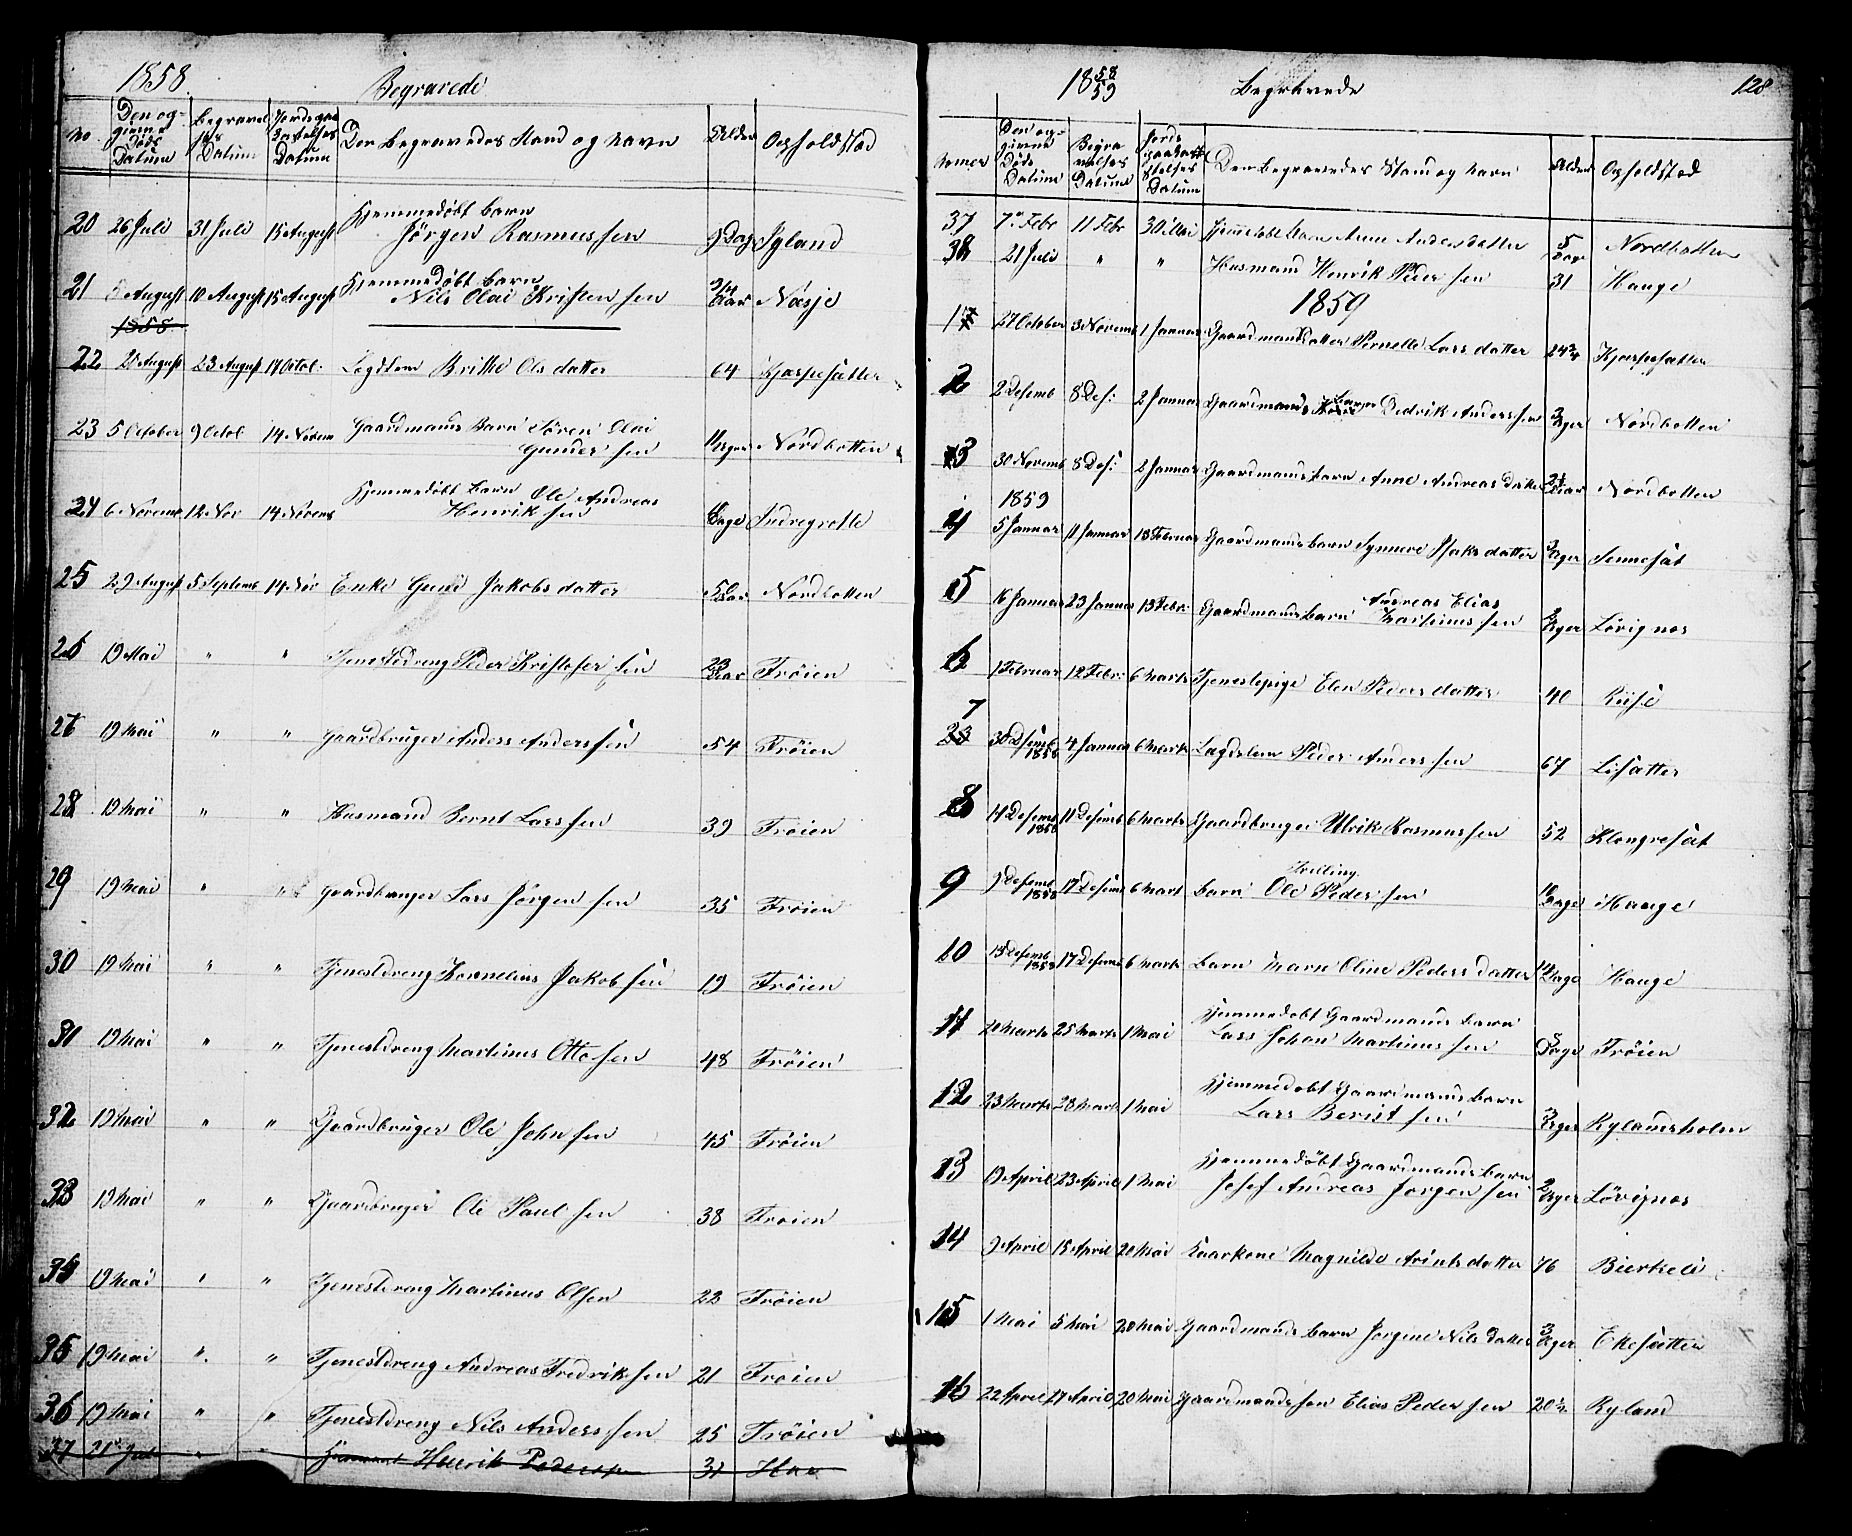 1858.
Begravede
No.
Den op-
givne
Døds
Datum
Begravel
ses
Datum
Jordspaa
kastelses
Datum
Den Begravedes Stand og Navn
Alder
Opholdstæd
20 26 Juli 31 Juli 15 August Hjemmedøbt Barn
Jørgen Rasmussen 9 Dag Igland
21 August 10 August 15 August Hjemmedøbt Barn
Nils Olai Kristensen 3/4 Aar Nåsje
1858.
22 20 August 23 August 17 Octob: Legdlem Brithe Olsdatter 64 Hjaspesåtter
23 5 October 9 Octob 14 Novem Gaardmands Barn Søren Olai
Gunder sen 11 Uger Nordbotten
24 6 Novemb 12 Nov 14 Novem Hjemmedøbt Barn Ole Andreas
Henriksen Dage Indregrotle
25 29 August 5 Septemb 14 Nov Enke Guni Jakobsdatter Aar Nordbotten
26 19 Mai " " Tjenestdreng Peder Kristofersen 23 Aar Trøien
27 19 Mai " " Gaardbruger Anders Anderssen 54 Trøien
28 19 Mai " " Husmand Bernt Larssen 39 Trøien
29 19 Mai " " Gaardbruger Lars Jørgensen 35 Trøien
30 19 Mai " " Tjenestdreng Kornelius Jakobsen 19 Trøien
31 19 Mai " " Tjenestdreng Martinus Ottosen 48 Trøien
32 19 Mai " " Gaardbruger Ole Johnsen 45 Trøien
33 19 Mai " " Gaardbruger Ole Paulsen 38 Trøien
34 19 Mai " " Tjenestdreng Martinus Olsen 22 Trøien
35 19 Mai " " Tjenestdreng Andreas Fredriksen 21 Trøien
36 19 Mai " " Tjenestdreng Nils Anderssen 25 Trøien
37 21 Juli " " Husmand Henrik Pedersen 31 Hau
18 58/59
Begravede
128
Numer
Den op-
givne
Døds
Datum
Begra
velses
Datum
Jords
paaka
stelses
Datum
Den Begravedes Stand og Navn
Alder
Opholdstæd
37 7de Febr 11 Febr 30 Mai Hjemedøbt Barn Anne Andersdatter 5 Dage Nordbotten
38 21 Juli " " Husmand Henrik Pedersen 31 Hauge
1859
1 27 October 3 Novemb 1 Januar Gaardmandsdatter Pernelle Larsdatter 24 3/4 Hjaspesåtter
2 2 Desemb 8 Des: 2 Januar Gaardmands Barn Dedrik Anderssen 3 Uger Nordbotten
3 30 Novemb 8 Des: 2 Januar Gaardmandsbarn Anne Andreasdatter Aar Nordbotten
1859
4 5 Januar 11 Januar 13 Februar Gaardmandsbarn Synneve Isaksdatter 3 Uger Sennesåt
5 16 Januar 23 Januar 13 Febr: Gaardmandsbarn Andreas Elias
Martinussen Uger Lövignes
6 1 Februar 12 Febr: 6 Marts Tjenestepige Elen Pedersdatter 40 Riise
7 30 Desemb 1858 4 Januar 6 Mart Lægdslem Peder Anderssen 67 Lisåtter
8 4 Desemb 1858 11 Desemb 6 Marts Gaardbruger Ulrik Rasmussen 52 Klongresåt
9 9 Desemb 1858 17 Desemb 6 Mart Trilling
Barn Ole Pedersen Dage Hauge
10 13 Desemb 1858 17 Desemb 6 Marts Barn Maren Oline Pedersdatter Dage Hauge
11 20 Marts 25 Marts 1 Mai Hjemmedøbt Gaardmands Barn
Lars Johan Martinussen Dage Trøien
12 23 Marts 28 Marts 1 Mai Hjemmedøbt Gaardmands Barn
Lars Berntsen Uger Rylandsholm
13 19 April 23 April 1 Mai Hjemmedøbt Gaardmands Barn
Josef Andreas Jørgensen 2 Uger Lövignes
14 9 April 15 April 20 Mai Kaarkone Magnilde Arentsdatter 76 Bierkeli
15 1 Mai 5 Mai 20 Mai Gaardmands Barn Jørgine Nilsdatter 3 Uger Ekesåtten
16 22 April 27 April 20 Mai Gaardmandssøn Elias Pedersen 20 1/2 Ryland